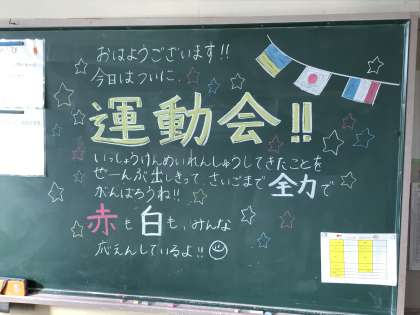 おはようございます!!
今日はついに、
運動会!!
いっしょうけんめいれんしゅうしてきたことを
ぜーんぶ出しきって、さいごまで全力で
がんばろうね!!
赤も白も、みんな
応えんしているよ!!